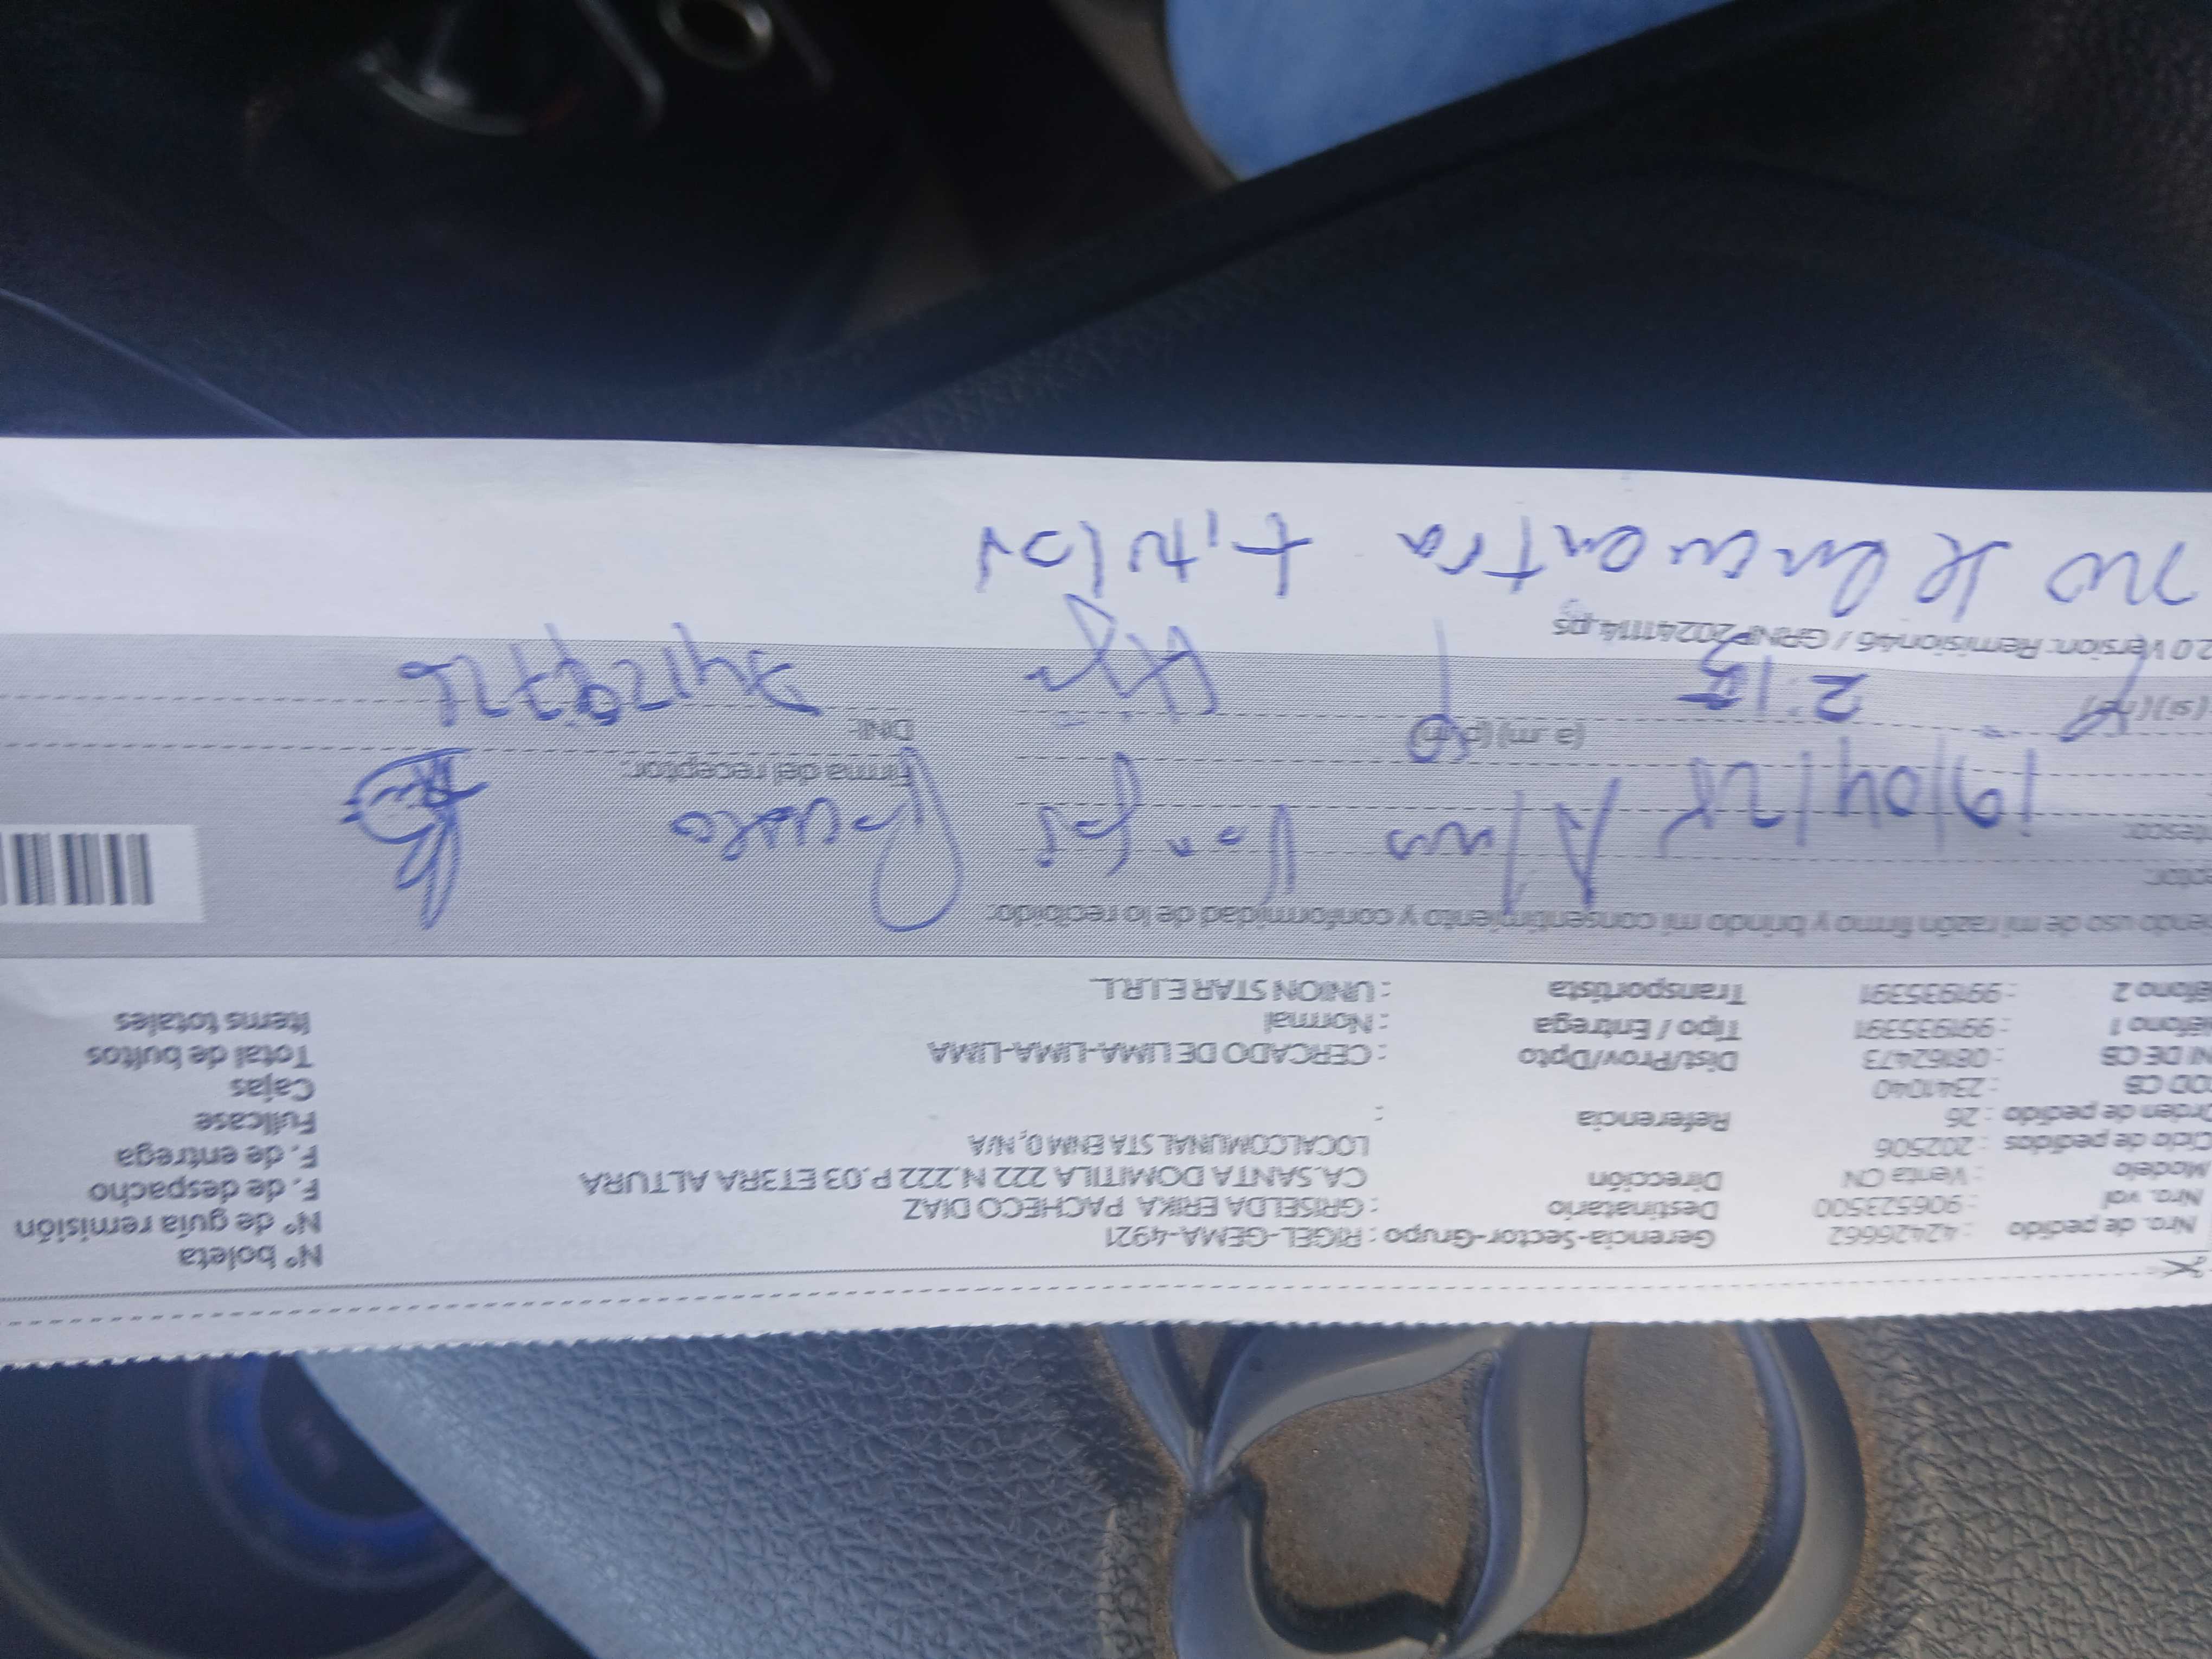 Nro. de pedido : 42426662 Gerencia-Sector-Grupo : RIGEL-GEMA-4921 N° boleta
Nro. val : 906523500 Destinatario : GRISELDA ERIKA PACHECO DIAZ N° de guía remisión
Modelo : Venta CN Dirección CA.SANTA DOMITILA 222 N.222 P.03 ET3RA ALTURA F. de despacho
Ciclo de pedidos : 202506 LOCALCOMUNAL STA ENM 0, N/A F. de entrega
rden de pedido : 26 Referencia : Fullcase
OD CB : 2341040 Cajas
NI DE CB : 08162473 Dist/Prov/Dpto : CERCADO DE LIMA-LIMA-LIMA Total de bultos
léfono 1 : 991935391 Tipo / Entrega : Normal Ítems totales
léfono 2 : 991935391 Transportista : UNION STAR E.I.R.L.
endo uso de mi razón firmo y brindo mi consentimiento y conformidad de lo recibido:
ptor:
tesco:
19/04/25 Vargas
Firma del receptor:
(si) (no) 2:15 (a.m) (p.m) Hija DNI:
2.0 Version: Remision46 / GRNP20241114.ps
no se encuentra titular